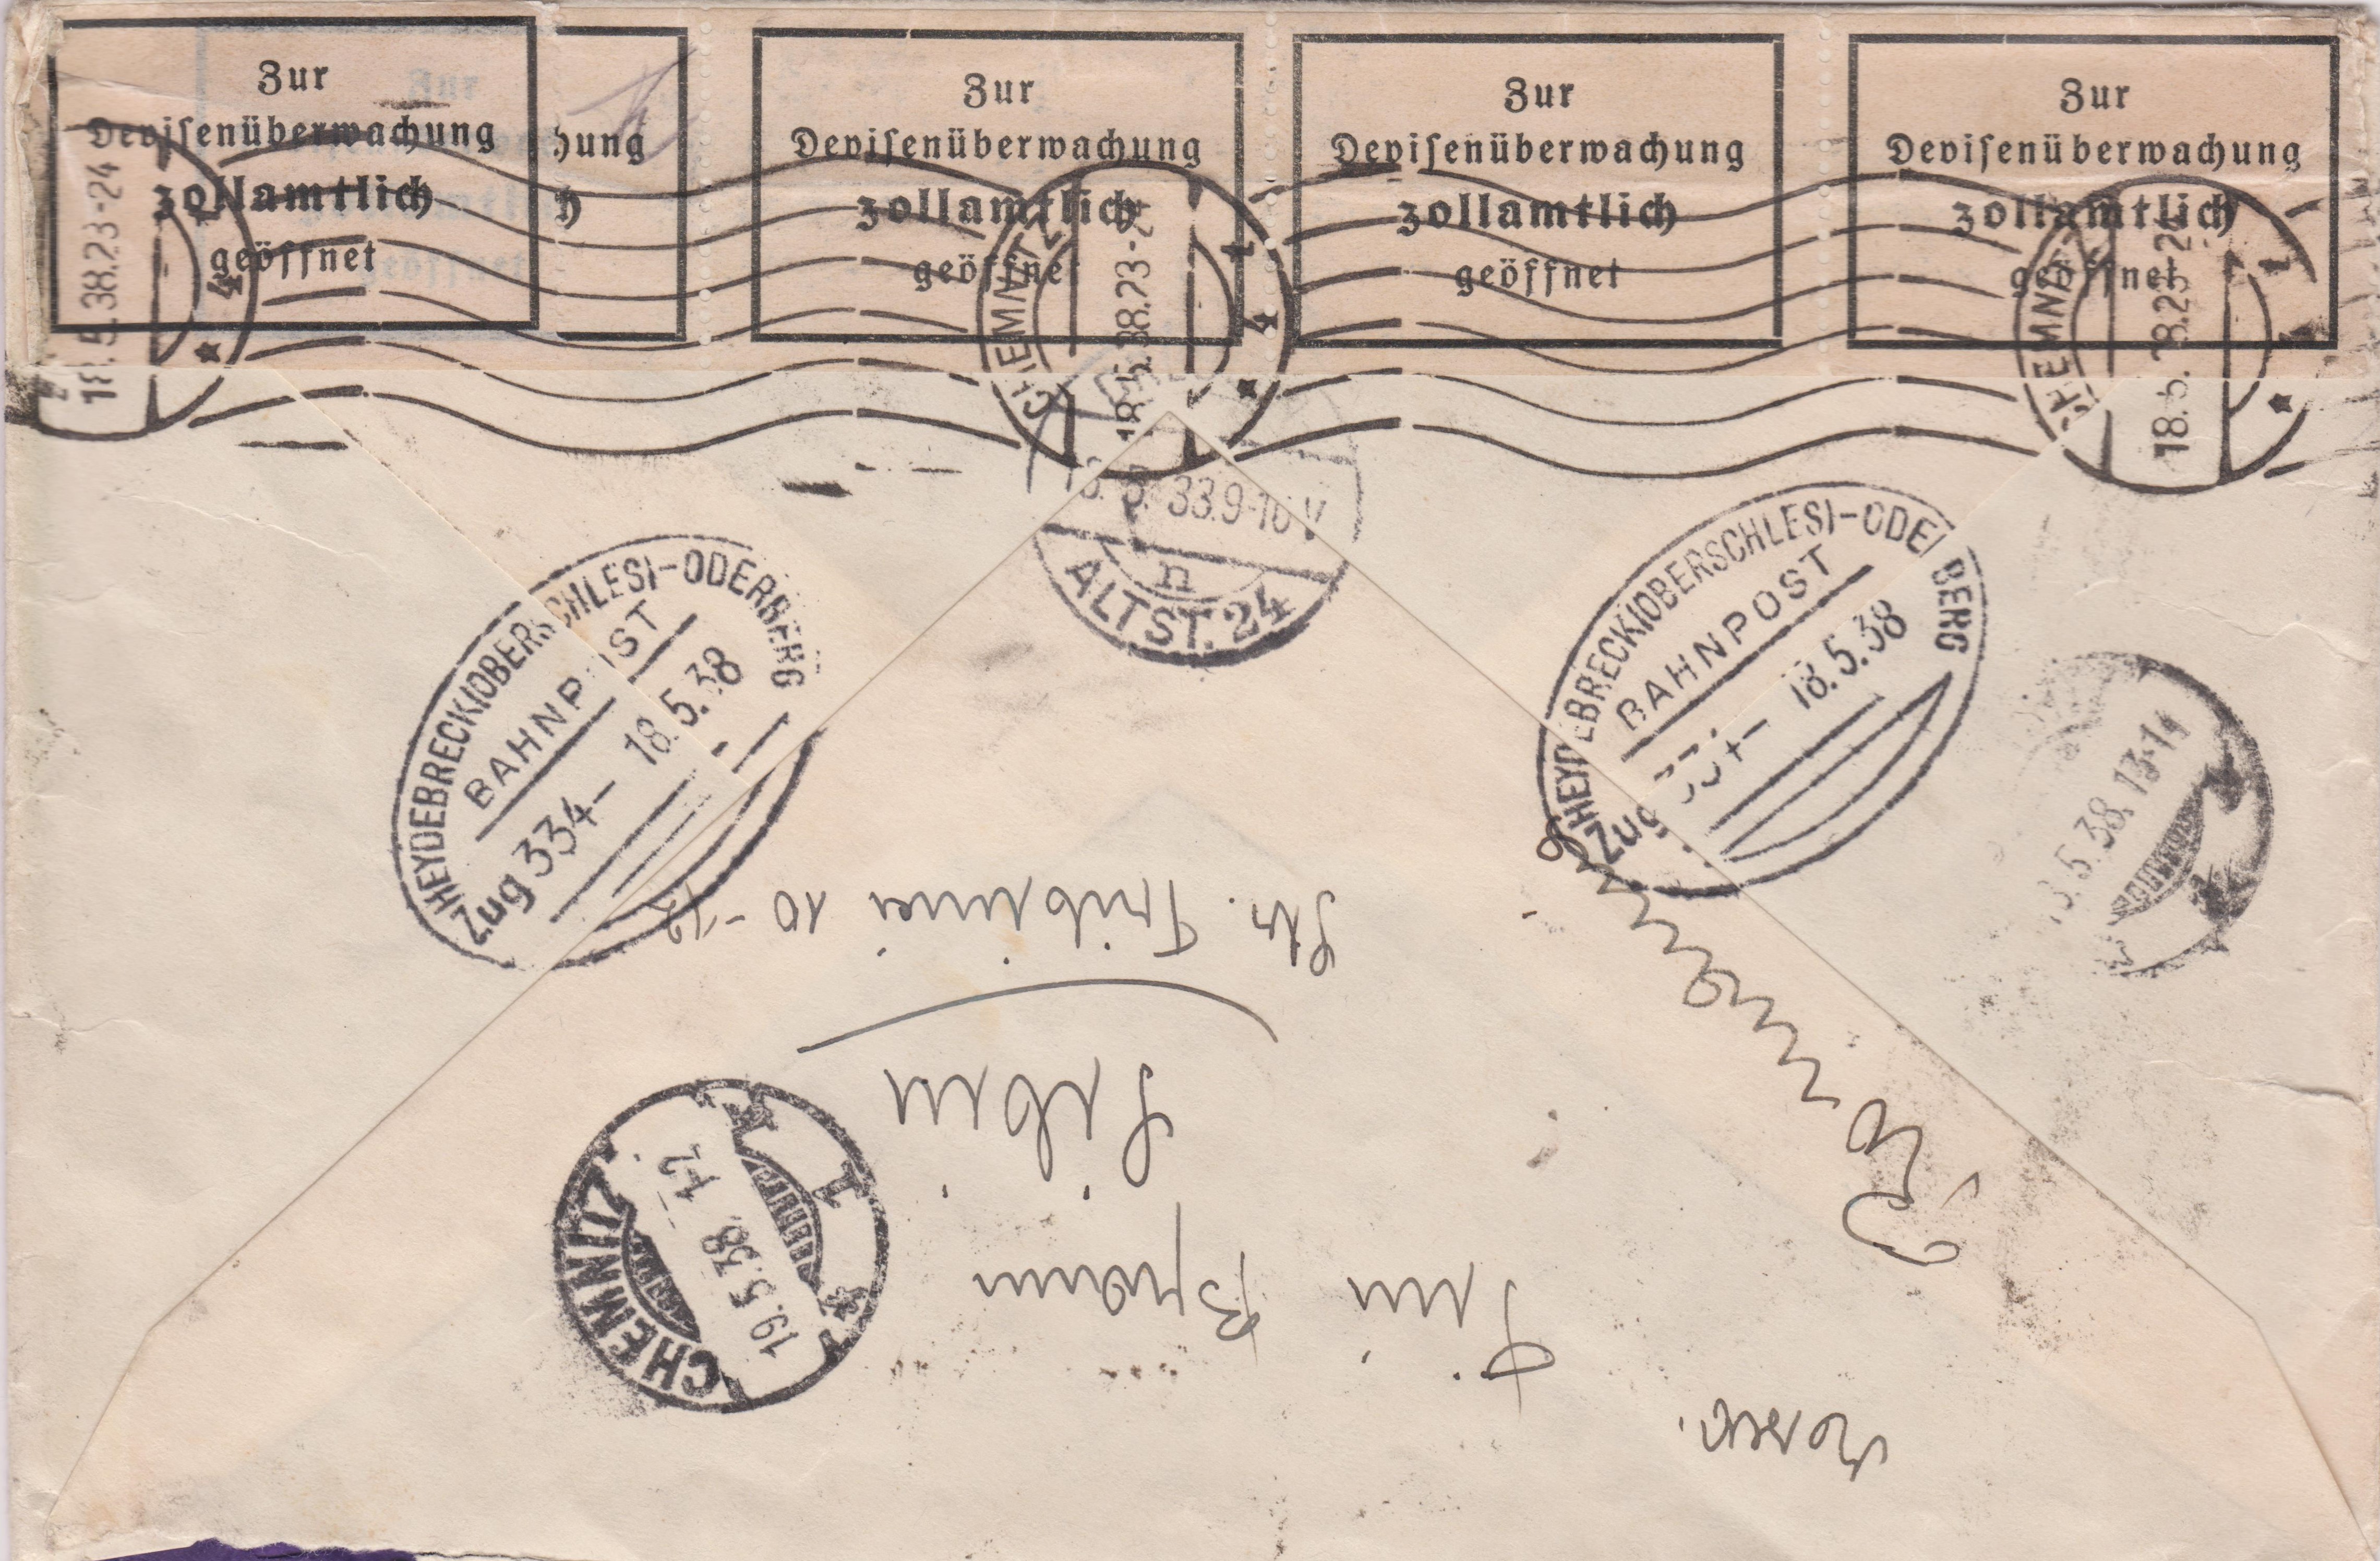 Zur
Devisenüberwachung
zollamtlich
geöffnet
Zur
hung
h
geöffnet
Zur
Devisenüberwachung
zollamtlich
geöffnet
Zur
Devisenüberwachung
zollamtlich
geöffnet
Zur
Devisenüberwachung
zollamtlich
geöffnet
18.5.38.23-24
4
CHEMNITZ
18.5.38.23-24
1
4
CHEMNITZ
18.5.38.23-24
1
9-10 V
n
ALTST. 24
HEYDEBRECK(OBERSCHLESI)-ODERBERG
BAHNPOST
Zug 334 18.5.38
HEYDEBRECK(OBERSCHLESI)-ODERBERG
BAHNPOST
Zug 334 18.5.38
5.38.13-14
CHEMNITZ
19.5.38. 1-2
1
Sibiu
Str. Tribunei 10-12